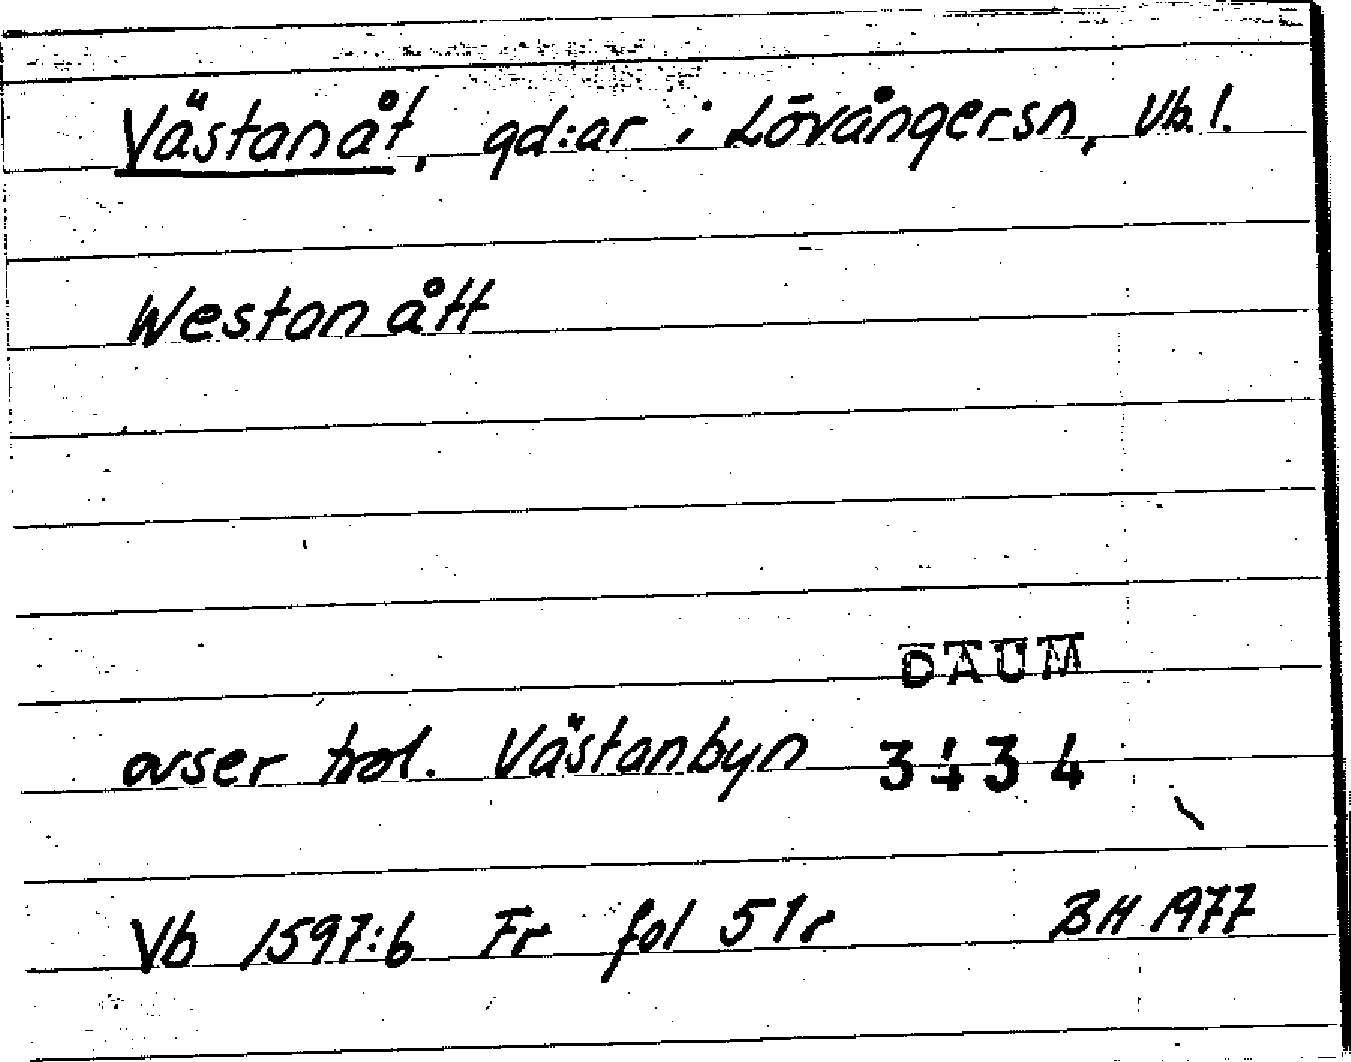 Västanåt, gd:ar i Lövångersn, Vb.l.
Westan ått
DAUM
avser trol. Västanbyn 3434
Vb 1597:6 Fr fol 51r BH 1977